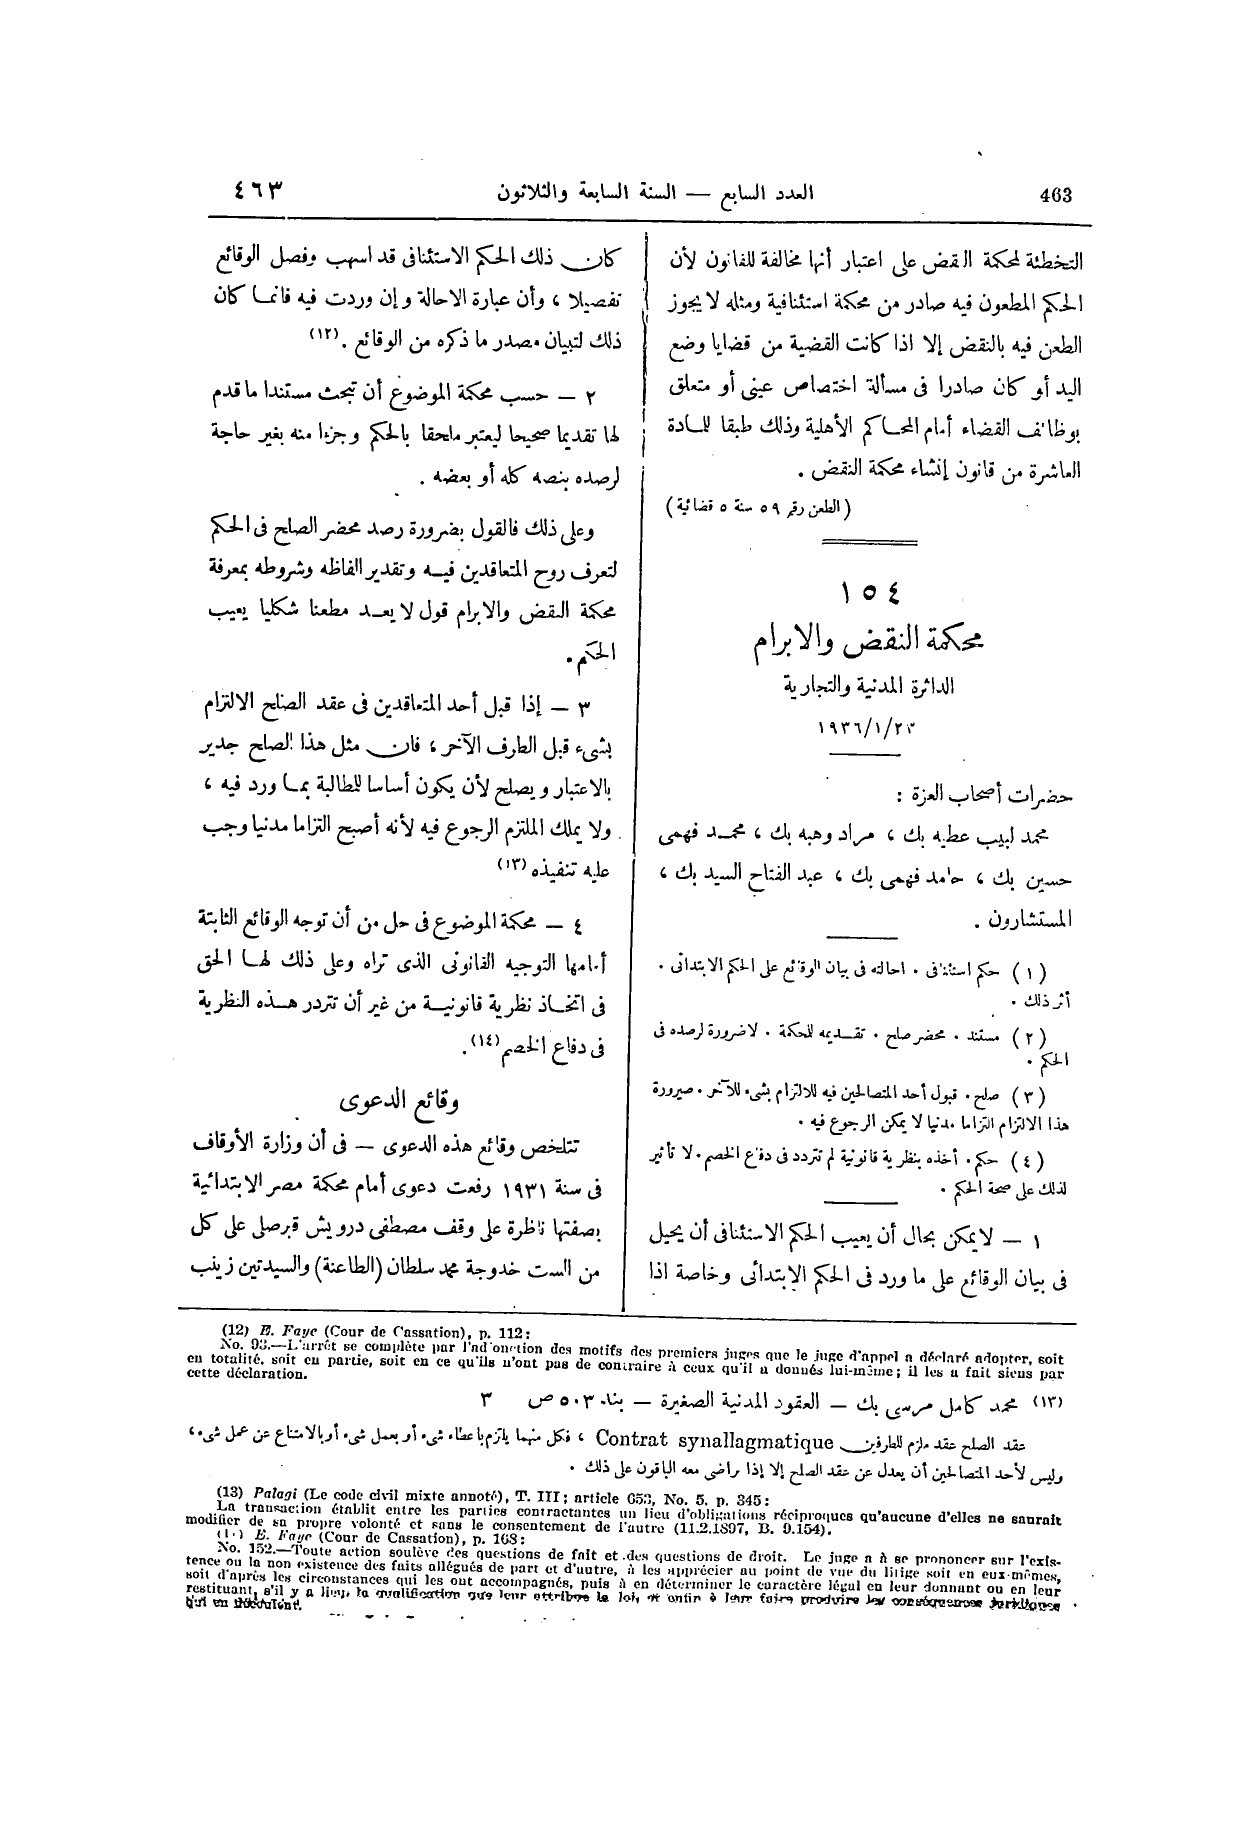 463 العدد السابع — السنة السابعة والثلاثون ٤٦٣
التخطئة لمحكمة النقض على اعتبار أنها مخالفة للقانون لأن
الحكم المطعون فيه صادر من محكمة استئنافية ومثله لا يجوز
الطعن فيه بالنقض إلا اذا كانت القضية من قضايا وضع
اليد أو كان صادرا فى مسألة اختصاص عينى أو متعلق
بوظائف القضاء أمام المحاكم الأهلية وذلك طبقا للمادة
العاشرة من قانون إنشاء محكمة النقض .
( الطعن رقم ٥٩ سنة ٥ قضائية )
١٥٤
محكمة النقض والابرام
الدائرة المدنية والتجارية
١٩٣٦/١/٢٣
حضرات أصحاب العزة :
محمد لبيب عطيه بك ، مراد وهبه بك ، محمد فهمى
حسين بك ، حامد فهمى بك ، عبد الفتاح السيد بك ،
المستشارون .
( ١ ) حكم استئنافى . احالته فى بيان الوقائع على الحكم الابتدائى .
أثر ذلك .
( ٢ ) مستند . محضر صلح . تقديمه للمحكمة . لا ضرورة لرصده فى
الحكم .
( ٣ ) صلح . قبول أحد المتصالحين فيه للالتزام بشىء للآخر . صيرورة
هذا الالتزام التزاما مدنيا لا يمكن الرجوع فيه .
( ٤ ) حكم . أخذه بنظرية قانونية لم تتردد فى دفاع الخصم . لا تأثير
لذلك على صحة الحكم .
١ — لا يمكن بحال أن يعيب الحكم الاستئنافى أن يحيل
فى بيان الوقائع على ما ورد فى الحكم الابتدائى وخاصة اذا
كان ذلك الحكم الاستئنافى قد اسهب وفصل الوقائع
تفصيلا ، وأن عبارة الاحالة وإن وردت فيه فانما كان
ذلك لتبيان مصدر ما ذكره من الوقائع .(١٢)
٢ — حسب محكمة الموضوع أن تبحث مستندا ما قدم
لها تقديما صحيحا ليعتبر ملحقا بالحكم وجزءا منه بغير حاجة
لرصده بنصه كله أو بعضه .
وعلى ذلك فالقول بضرورة رصد محضر الصلح فى الحكم
لتعرف روح المتعاقدين فيه وتقدير الفاظه وشروطه بمعرفة
محكمة النقض والابرام قول لا يعد مطعنا شكليا يعيب
الحكم .
٣ — إذا قبل أحد المتعاقدين فى عقد الصلح الالتزام
بشىء قبل الطرف الآخر ، فان مثل هذا الصلح جدير
بالاعتبار ويصلح لأن يكون أساسا للطالبة بما ورد فيه ،
ولا يملك الملتزم الرجوع فيه لأنه أصبح التزاما مدنيا وجب
عليه تنفيذه (١٣)
٤ — محكمة الموضوع فى حل من أن توجه الوقائع الثابتة
أمامها التوجيه القانونى الذى تراه وعلى ذلك لها الحق
فى اتخاذ نظرية قانونية من غير أن تتردر هذه النظرية
فى دفاع الخصم (١٤).
وقائع الدعوى
تتلخص وقائع هذه الدعوى — فى أن وزارة الأوقاف
فى سنة ١٩٣١ رفعت دعوى أمام محكمة مصر الابتدائية
بصفتها ناظرة على وقف مصطفى درويش قبرصلى على كل
من الست خدوجة محمد سلطان (الطاعنة) والسيدتين زينب
(12) E. Faye (Cour de Cassation), p. 112:
No. 93.—L'arrêt se complète par l'adjonction des motifs des premiers juges que le juge d'appel a déclaré adopter, soit
en totalité, soit en partie, soit en ce qu'ils n'ont pas de contraire à ceux qu'il a donnés lui-même; il les a fait siens par
cette déclaration.
(١٣) محمد كامل مرسى بك — العقود المدنية الصغيرة — بند ٥٠٣ ص ٣
عقد الصلح عقد ملزم للطرفين Contrat synallagmatique ، فكل منهما يلتزم باعطاء شىء أو بعمل شىء أو بالامتناع عن عمل شىء ،
وليس لأحد المتصالحين أن يعدل عن عقد الصلح إلا إذا تراضى معه الباقون على ذلك .
(13) Palagi (Le code civil mixte annoté), T. III; article 653, No. 5. p. 345:
La transaction établit entre les parties contractantes un lieu d'obligations réciproques qu'aucune d'elles ne saurait
modifier de sa propre volonté et sans le consentement de l'autre (11.2.1897, B. 9.154).
E. Faye (Cour de Cassation), p. 168:
No. 152.—Toute action soulève des questions de fait et des questions de droit. Le juge a à se prononcer sur l'exis-
tence ou la non existence des faits allégués de part et d'autre, à les apprécier au point de vue du litige soit en eux-mêmes,
soit d'après les circonstances qui les ont accompagnés, puis à en déterminer le caractère légal en leur donnant ou en leur
restituant, s'il y a lieu, la qualification que leur attribue la loi, et enfin à leur faire produire les conséquences juridiques
qui en découlent.